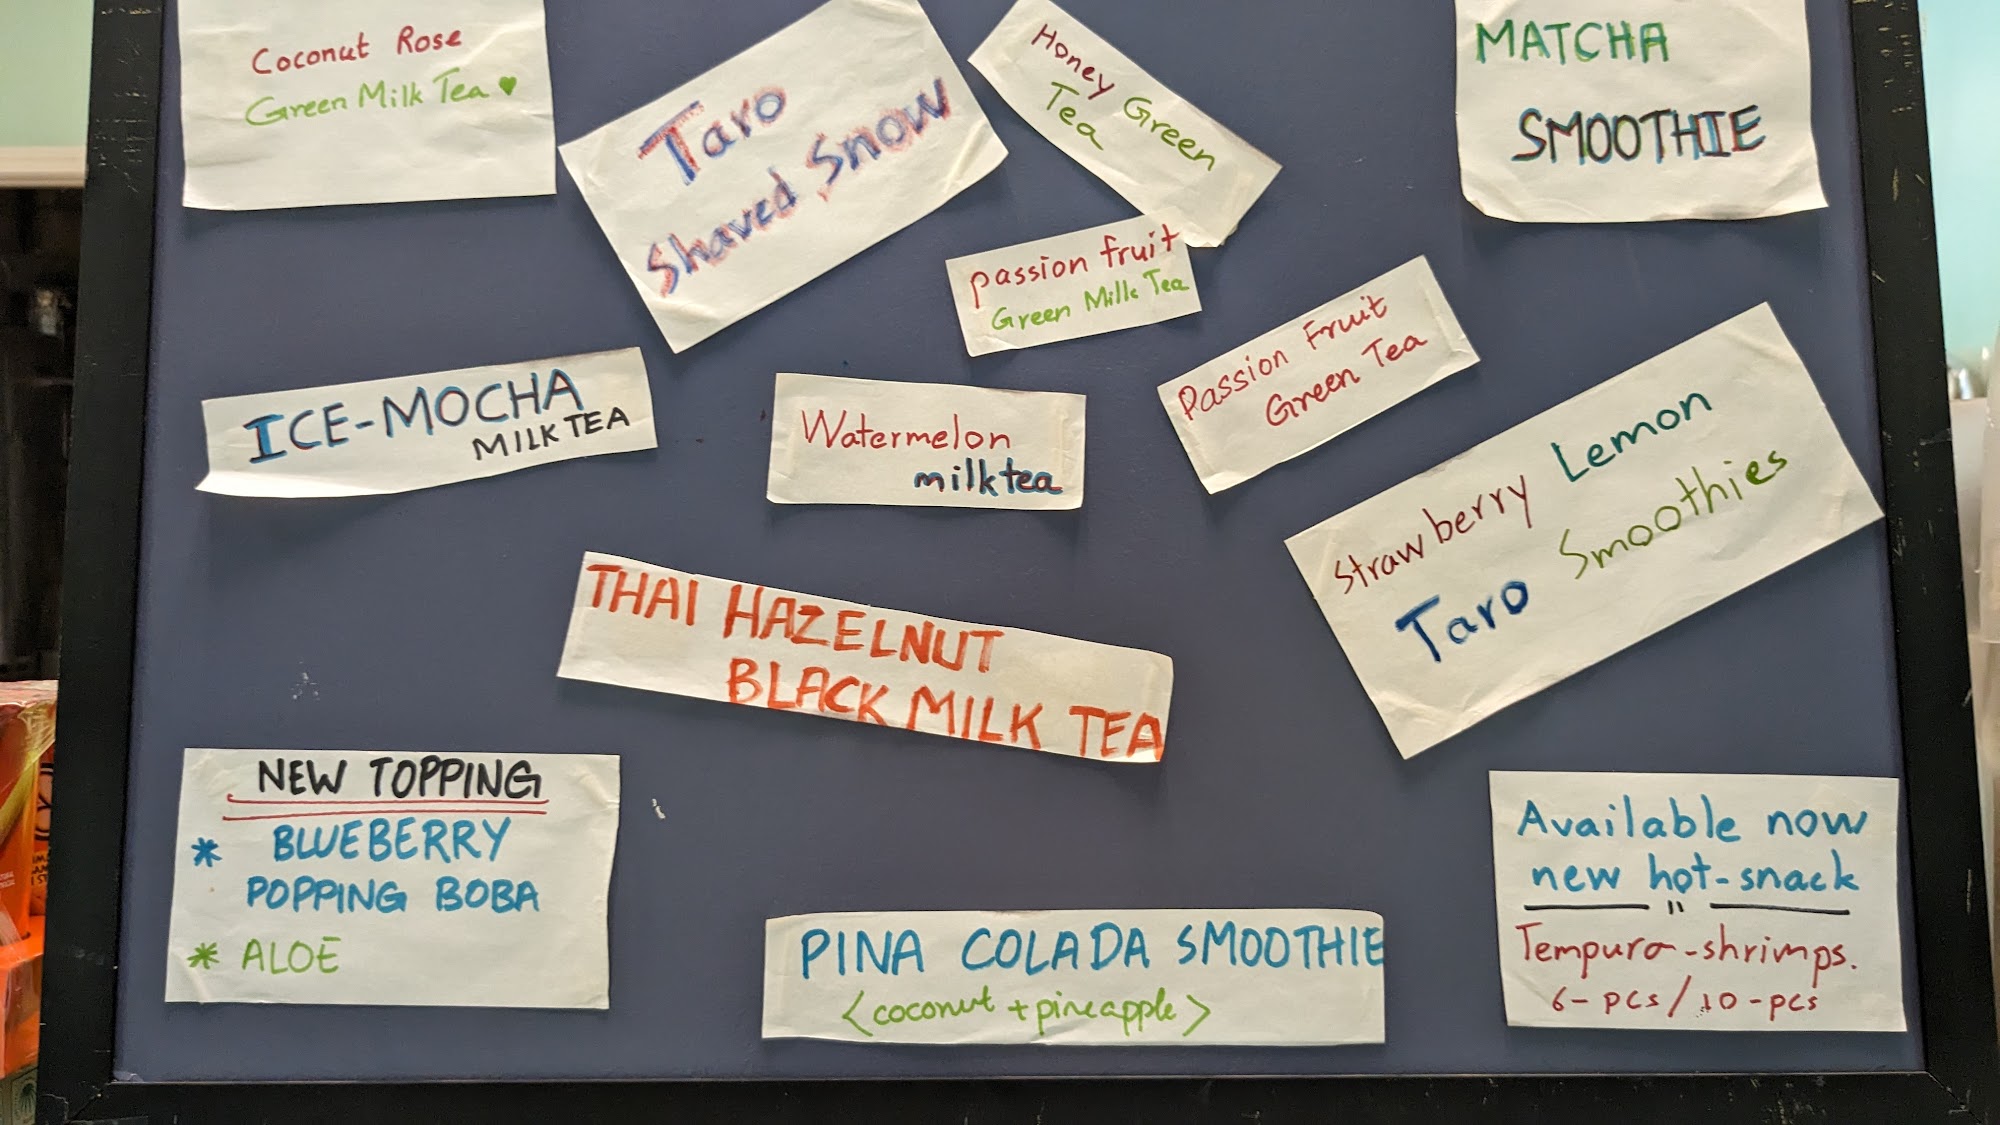 Coconut Rose
Green Milk Tea ♥
Taro
Shaved Snow
Honey Green
Tea
MATCHA
SMOOTHIE
passion fruit
Green Milk Tea
Passion Fruit
Green Tea
ICE-MOCHA
MILK TEA
Watermelon
milk tea
Strawberry Lemon
Taro Smoothies
THAI HAZELNUT
BLACK MILK TEA
NEW TOPPING
* BLUEBERRY
POPPING BOBA
* ALOE
PINA COLADA SMOOTHIE
<coconut + pineapple>
Available now
new hot-snack
"
Tempura-shrimps.
6-pcs/10-pcs